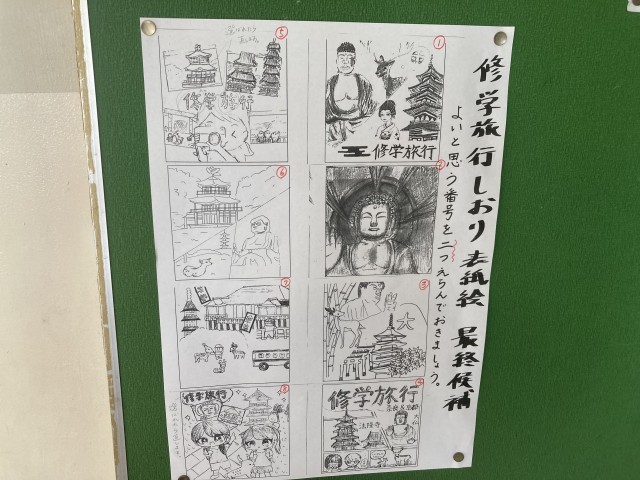 修学旅行しおり表紙絵 最終候補
よいと思う番号を二つえらんでおきましょう。
①
修学旅行
②
③
大
修学旅行
奈良&京都
法隆寺
大仏
⑤
修学旅行
⑥
⑦
⑧
修学旅行